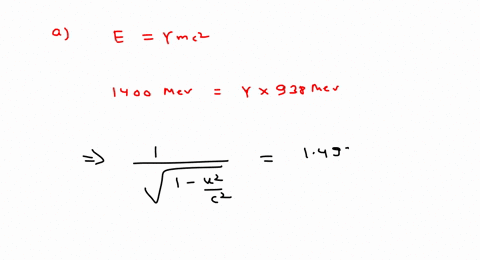 a) E = γmc²
1400 Mev = γ × 938 Mev
⇒ 1/√(1 - u²/c²) = 1.49